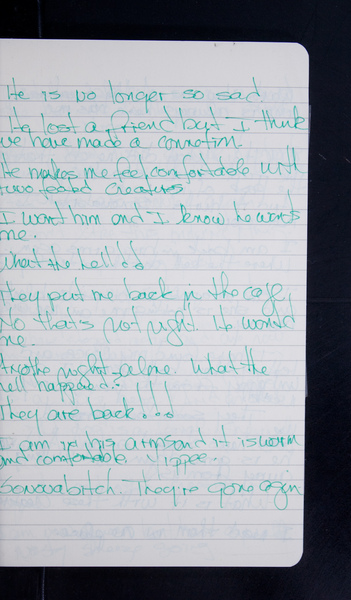 He is no longer so sad.
He lost a friend but I think
we have made a connection.
He makes me feel comfortable with
two feded creatures
I want him and I know he wants
me.
What the hell!!
They put me back in the cage
No that's not right. He wanted
me.
Anothe night alone. What the
hell happened?!!!
They are back!!!
I am in his arms and it is warm
and comfortable. Yippee.
Sonovabitch. They're gone agin